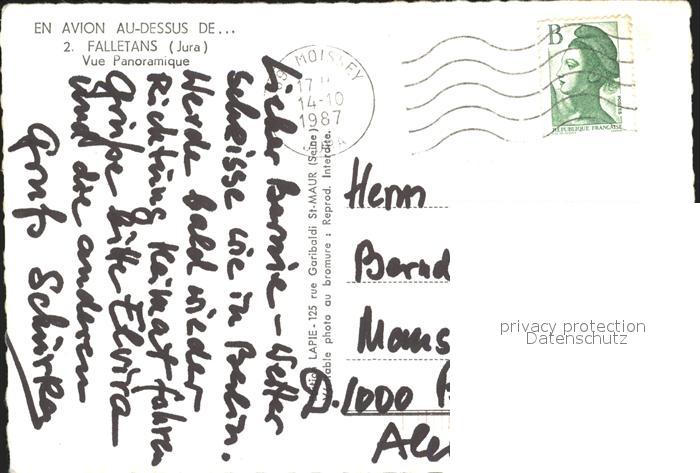 EN AVION AU-DESSUS DE...
2. FALLETANS (Jura)
Vue Panoramique
MOISSEY
17 H
14-10
1987
JURA
B
RÉPUBLIQUE FRANÇAISE
Lieber Bernie - Wetter
Scheisse wie in Berlin.
Werde bald wieder
Richtung Heimat fahren
Grüße bitte Elvira
und die anderen
Gruß
LAPIE - 125 rue Garibaldi St-MAUR (Seine)
Véritable photo au bromure : Reprod. Interdite.
Herrn
Bernd
Mans
D. 1000 B
Ale
privacy protection
Datenschutz